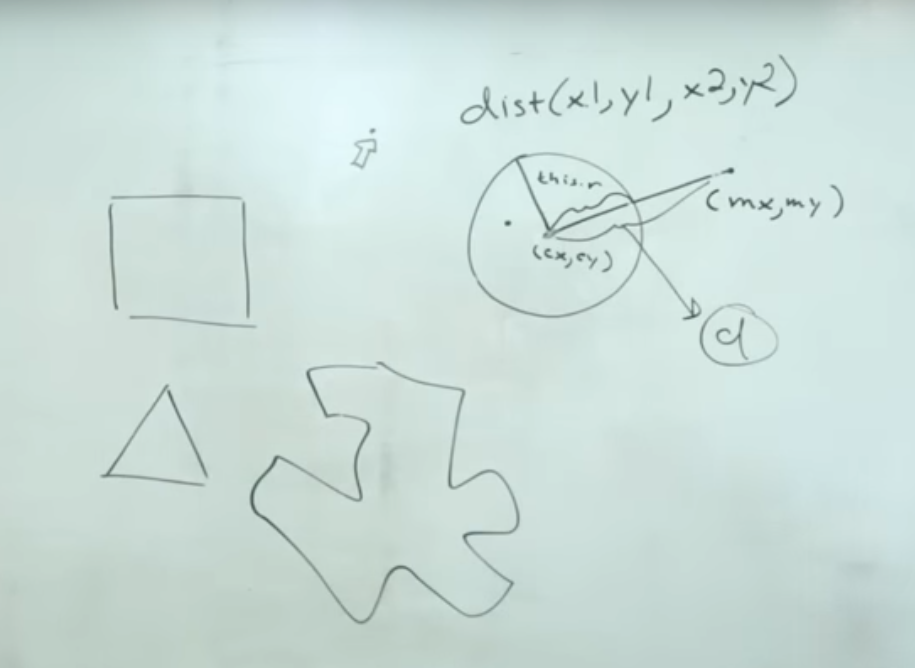 dist(x1,y1,x2,y2)
this.r
(mx,my)
(cx,cy)
d